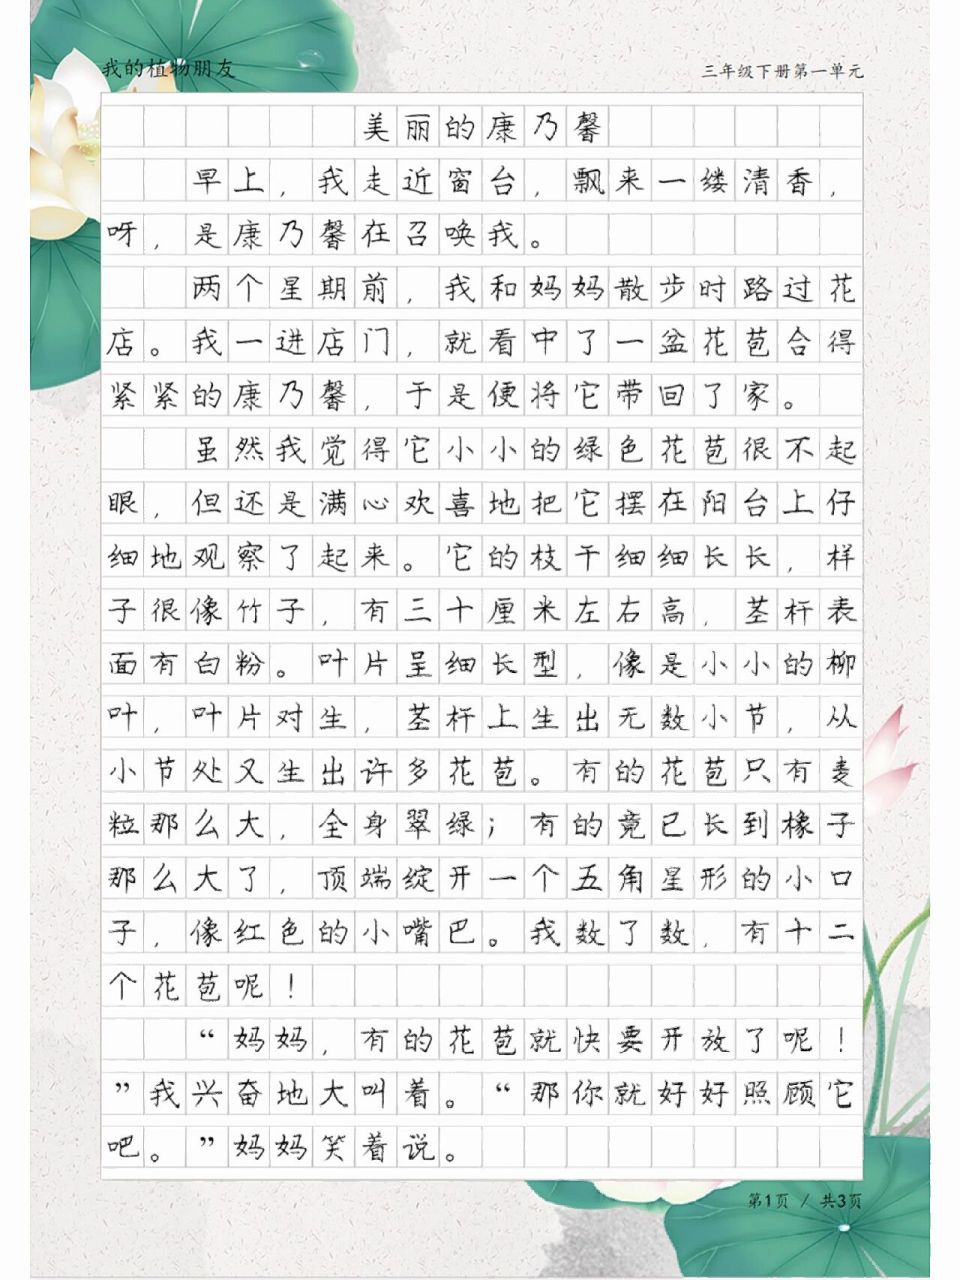 我的植物朋友
三年级下册第一单元
美丽的康乃馨
早上，我走近窗台，飘来一缕清香，
呀，是康乃馨在召唤我。
两个星期前，我和妈妈散步时路过花
店。我一进店门，就看中了一盆花苞合得
紧紧的康乃馨，于是便将它带回了家。
虽然我觉得它小小的绿色花苞很不起
眼，但还是满心欢喜地把它摆在阳台上仔
细地观察了起来。它的枝干细细长长，样
子很像竹子，有三十厘米左右高，茎杆表
面有白粉。叶片呈细长型，像是小小的柳
叶，叶片对生，茎杆上生出无数小节，从
小节处又生出许多花苞。有的花苞只有麦
粒那么大，全身翠绿；有的竟已长到橡子
那么大了，顶端绽开一个五角星形的小口
子，像红色的小嘴巴。我数了数，有十二
个花苞呢！
“妈妈，有的花苞就快要开放了呢！
”我兴奋地大叫着。“那你就好好照顾它
吧。”妈妈笑着说。
第1页 / 共3页